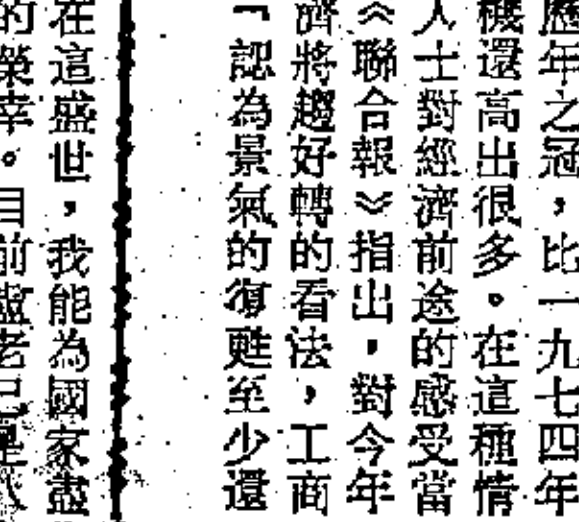 歷年之冠，比一九七四年
機還高出很多。在這種情
人士對經濟前途的感受當
《聯合報》指出，對今年
濟將趨好轉的看法，工商
「認為景氣的復甦至少還
在這盛世，我能為國家盡
的榮幸。目前